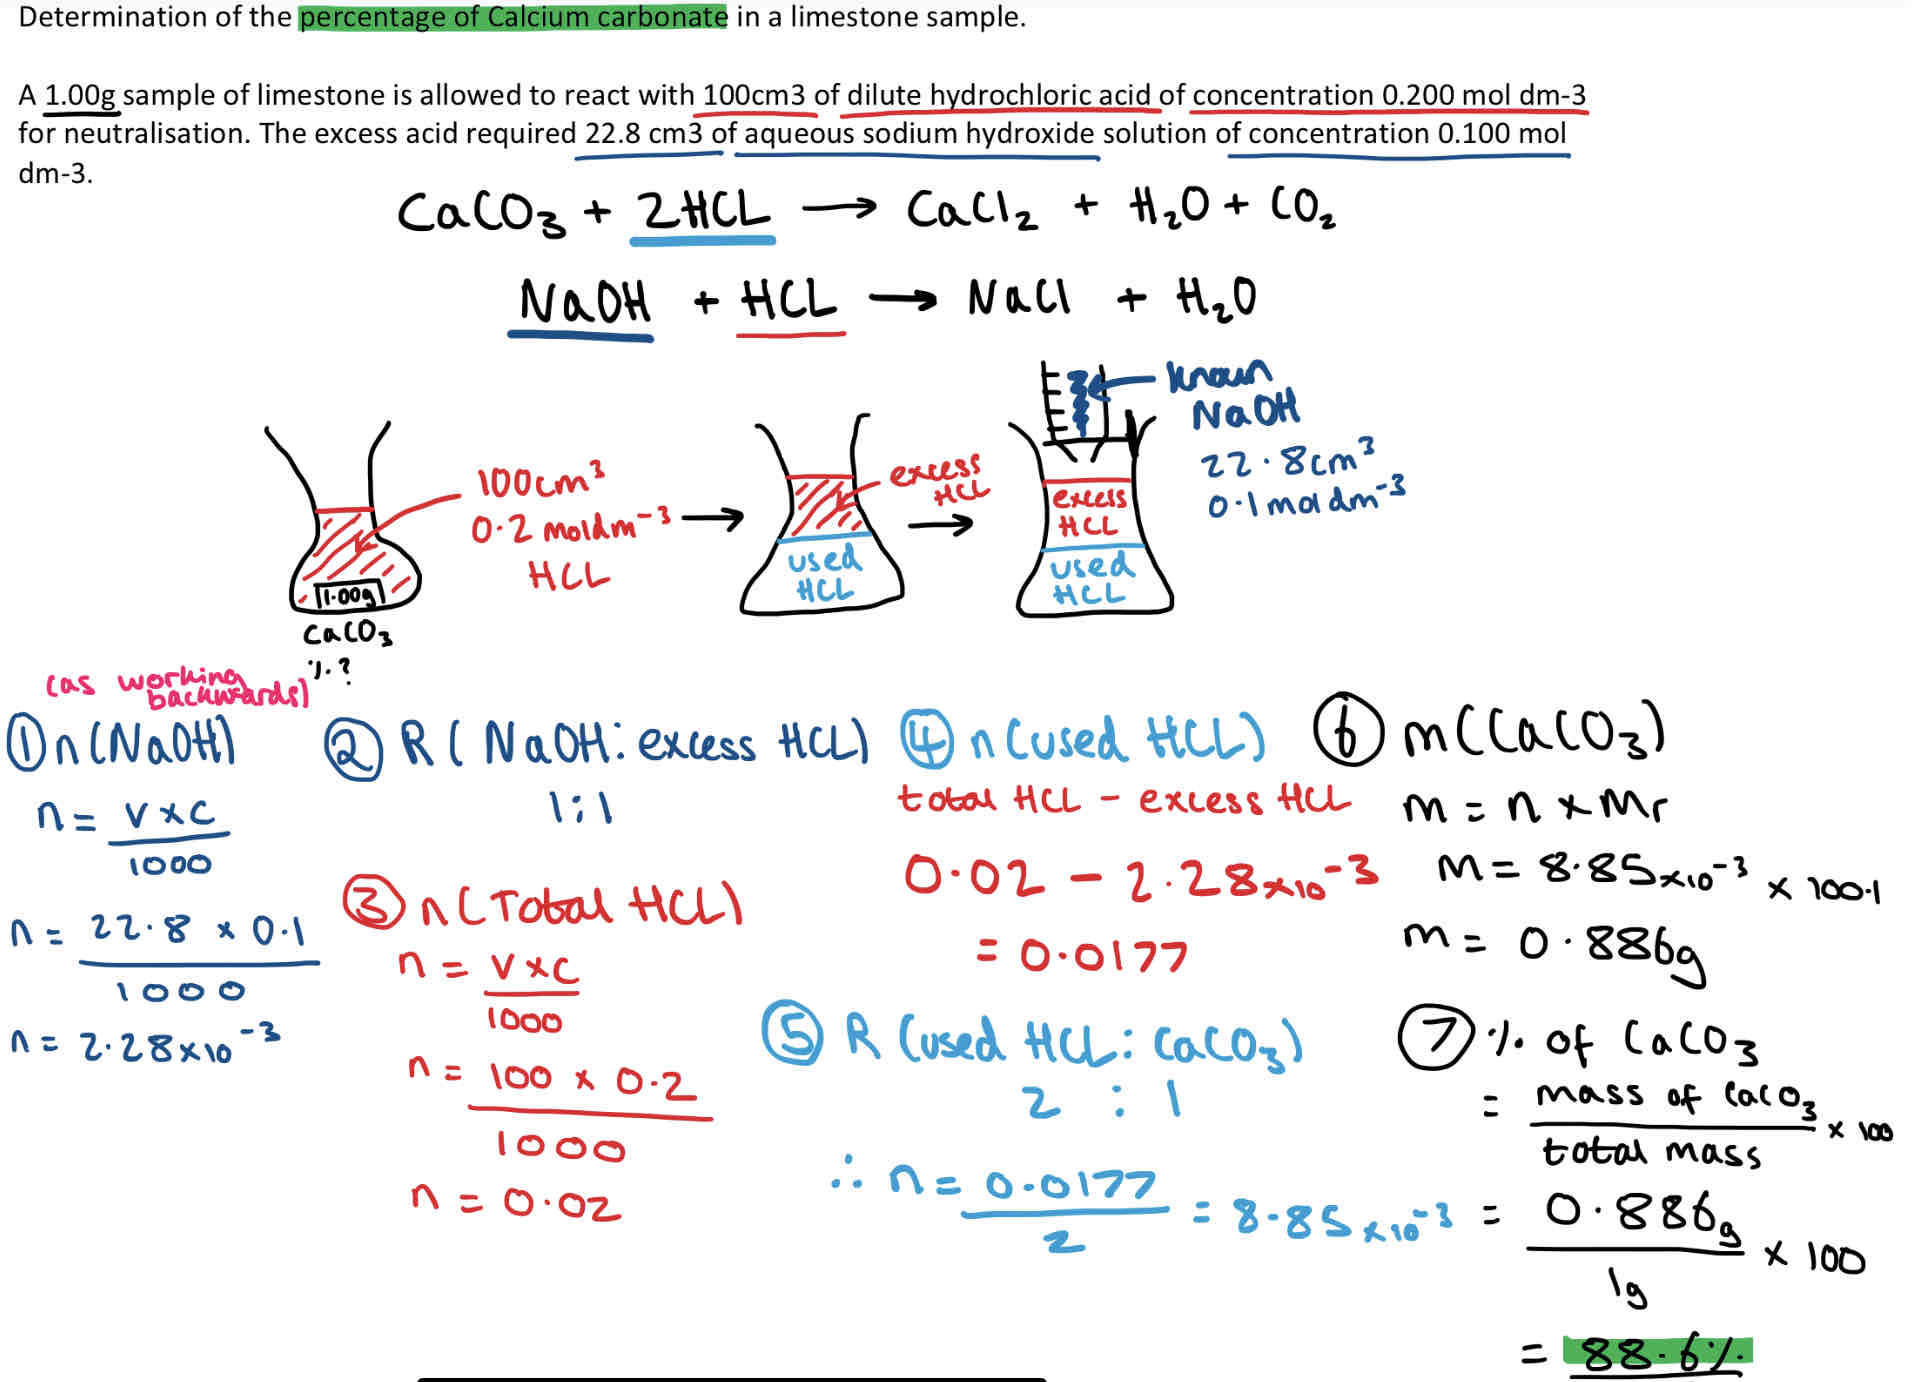 Determination of the percentage of Calcium carbonate in a limestone sample.
A 1.00g sample of limestone is allowed to react with 100cm3 of dilute hydrochloric acid of concentration 0.200 mol dm-3
for neutralisation. The excess acid required 22.8 cm3 of aqueous sodium hydroxide solution of concentration 0.100 mol
dm-3.
CaCO₃ + 2HCL → CaCl₂ + H₂O + CO₂
NaOH + HCL → NaCl + H₂O
1.00g
CaCO₃
%?
100cm³
0.2 moldm⁻³
HCL
→
excess
HCL
used
HCL
→
excess
HCL
used
HCL
known
NaOH
22.8cm³
0.1moldm⁻³
(as working
backwards)
① n(NaOH)
n = v×c
1000
n = 22.8 × 0.1
1000
n = 2.28×10⁻³
② R ( NaOH: excess HCL)
1:1
③ n(Total HCL)
n = v×c
1000
n = 100 × 0.2
1000
n = 0.02
④ n(used HCL)
total HCL - excess HCL
0.02 - 2.28×10⁻³
= 0.0177
⑤ R (used HCL: CaCO₃)
2 : 1
∴ n = 0.0177 = 8.85×10⁻³
2
⑥ m(CaCO₃)
m = n × Mr
m = 8.85×10⁻³ × 100.1
m = 0.886g
⑦ % of CaCO₃
= mass of CaCO₃ × 100
total mass
= 0.886g × 100
1g
= 88.6%